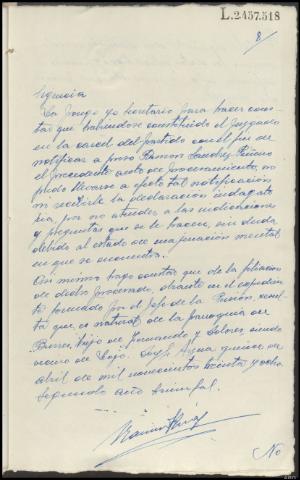 L.2457.518
8/
Diligencia
La pongo yo Secretario para hacer cons-
tar que habiendose constituido el Juzgado
en la carcel del Partido con el fin de
notificar a preso Ramon Sanchez
el procedente auto de procesamiento, no
pudo llevarse a efecto tal notificación
ni recibirle la declaración indagato
ria, por no atender a las indicaciones
y preguntas que se le hacen, sin duda
debido al estado de enajenación mental
en que se encuentra.
Asi mismo hago constar que de la filiacion
de dicho procesado, obrante en el expedien
te formado por el Jefe de la Prisión, resul
ta que es natural de la parroquia de
hijo de Fernando y Dolores siendo
vecino de quince de
abril de mil novecientos treinta y ocho
Segundo año triunfal.
No